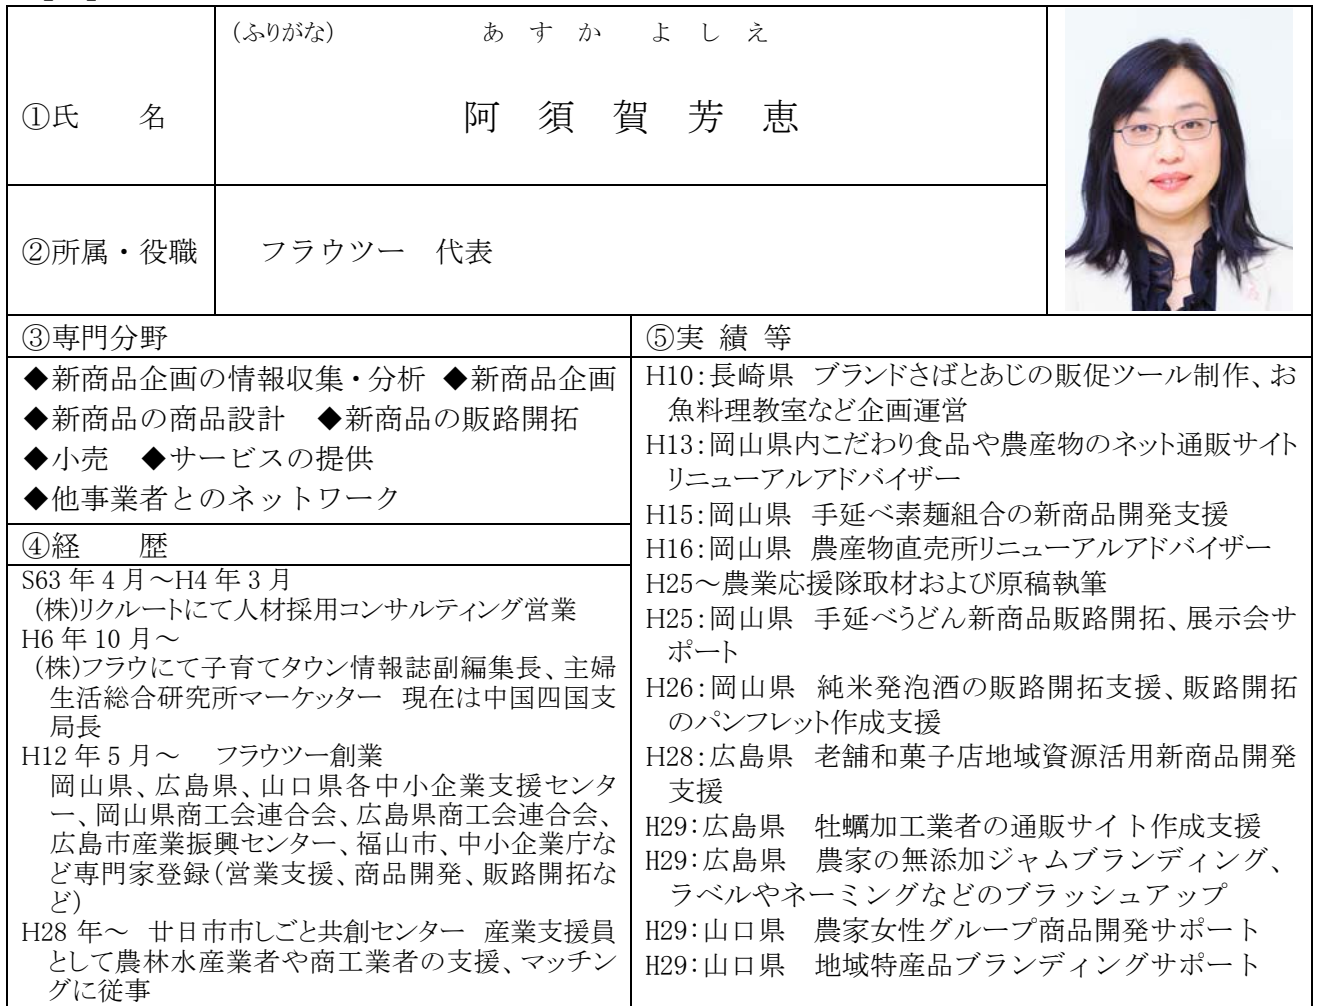 (ふりがな) あ す か よ し え
①氏 名 阿 須 賀 芳 恵
②所属・役職 フラウツー 代表
③専門分野
◆新商品企画の情報収集・分析 ◆新商品企画
◆新商品の商品設計 ◆新商品の販路開拓
◆小売 ◆サービスの提供
◆他事業者とのネットワーク
④経 歴
S63 年 4 月～H4 年 3 月
(株)リクルートにて人材採用コンサルティング営業
H6 年 10 月～
(株)フラウにて子育てタウン情報誌副編集長、主婦
生活総合研究所マーケッター 現在は中国四国支
局長
H12 年 5 月～ フラウツー創業
岡山県、広島県、山口県各中小企業支援センタ
ー、岡山県商工会連合会、広島県商工会連合会、
広島市産業振興センター、福山市、中小企業庁な
ど専門家登録(営業支援、商品開発、販路開拓な
ど)
H28 年～ 廿日市市しごと共創センター 産業支援員
として農林水産業者や商工業者の支援、マッチン
グに従事
⑤実 績 等
H10:長崎県 ブランドさばとあじの販促ツール制作、お
魚料理教室など企画運営
H13:岡山県内こだわり食品や農産物のネット通販サイト
リニューアルアドバイザー
H15:岡山県 手延べ素麺組合の新商品開発支援
H16:岡山県 農産物直売所リニューアルアドバイザー
H25～農業応援隊取材および原稿執筆
H25:岡山県 手延べうどん新商品販路開拓、展示会サ
ポート
H26:岡山県 純米発泡酒の販路開拓支援、販路開拓
のパンフレット作成支援
H28:広島県 老舗和菓子店地域資源活用新商品開発
支援
H29:広島県 牡蠣加工業者の通販サイト作成支援
H29:広島県 農家の無添加ジャムブランディング、
ラベルやネーミングなどのブラッシュアップ
H29:山口県 農家女性グループ商品開発サポート
H29:山口県 地域特産品ブランディングサポート